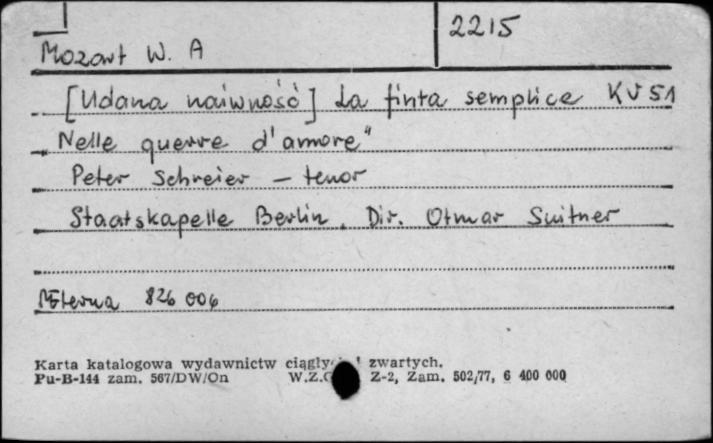 2215
Mozart W. A
[Udana naiwność] La finta semplice KV 51
„Nelle guerre d'amore"
Peter Schreier — tenor
Staatskapelle Berlin. Dir. Otmar Suitner
Eterna 826 006
Karta katalogowa wydawnictw zwartych.
Pu-B-144 zam. 567/DW/On W.Z. Z-2, Zam. 502/77, 6 400 000